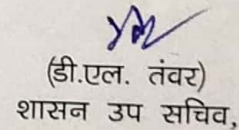 (डी.एल. तंवर)
शासन उप सचिव,